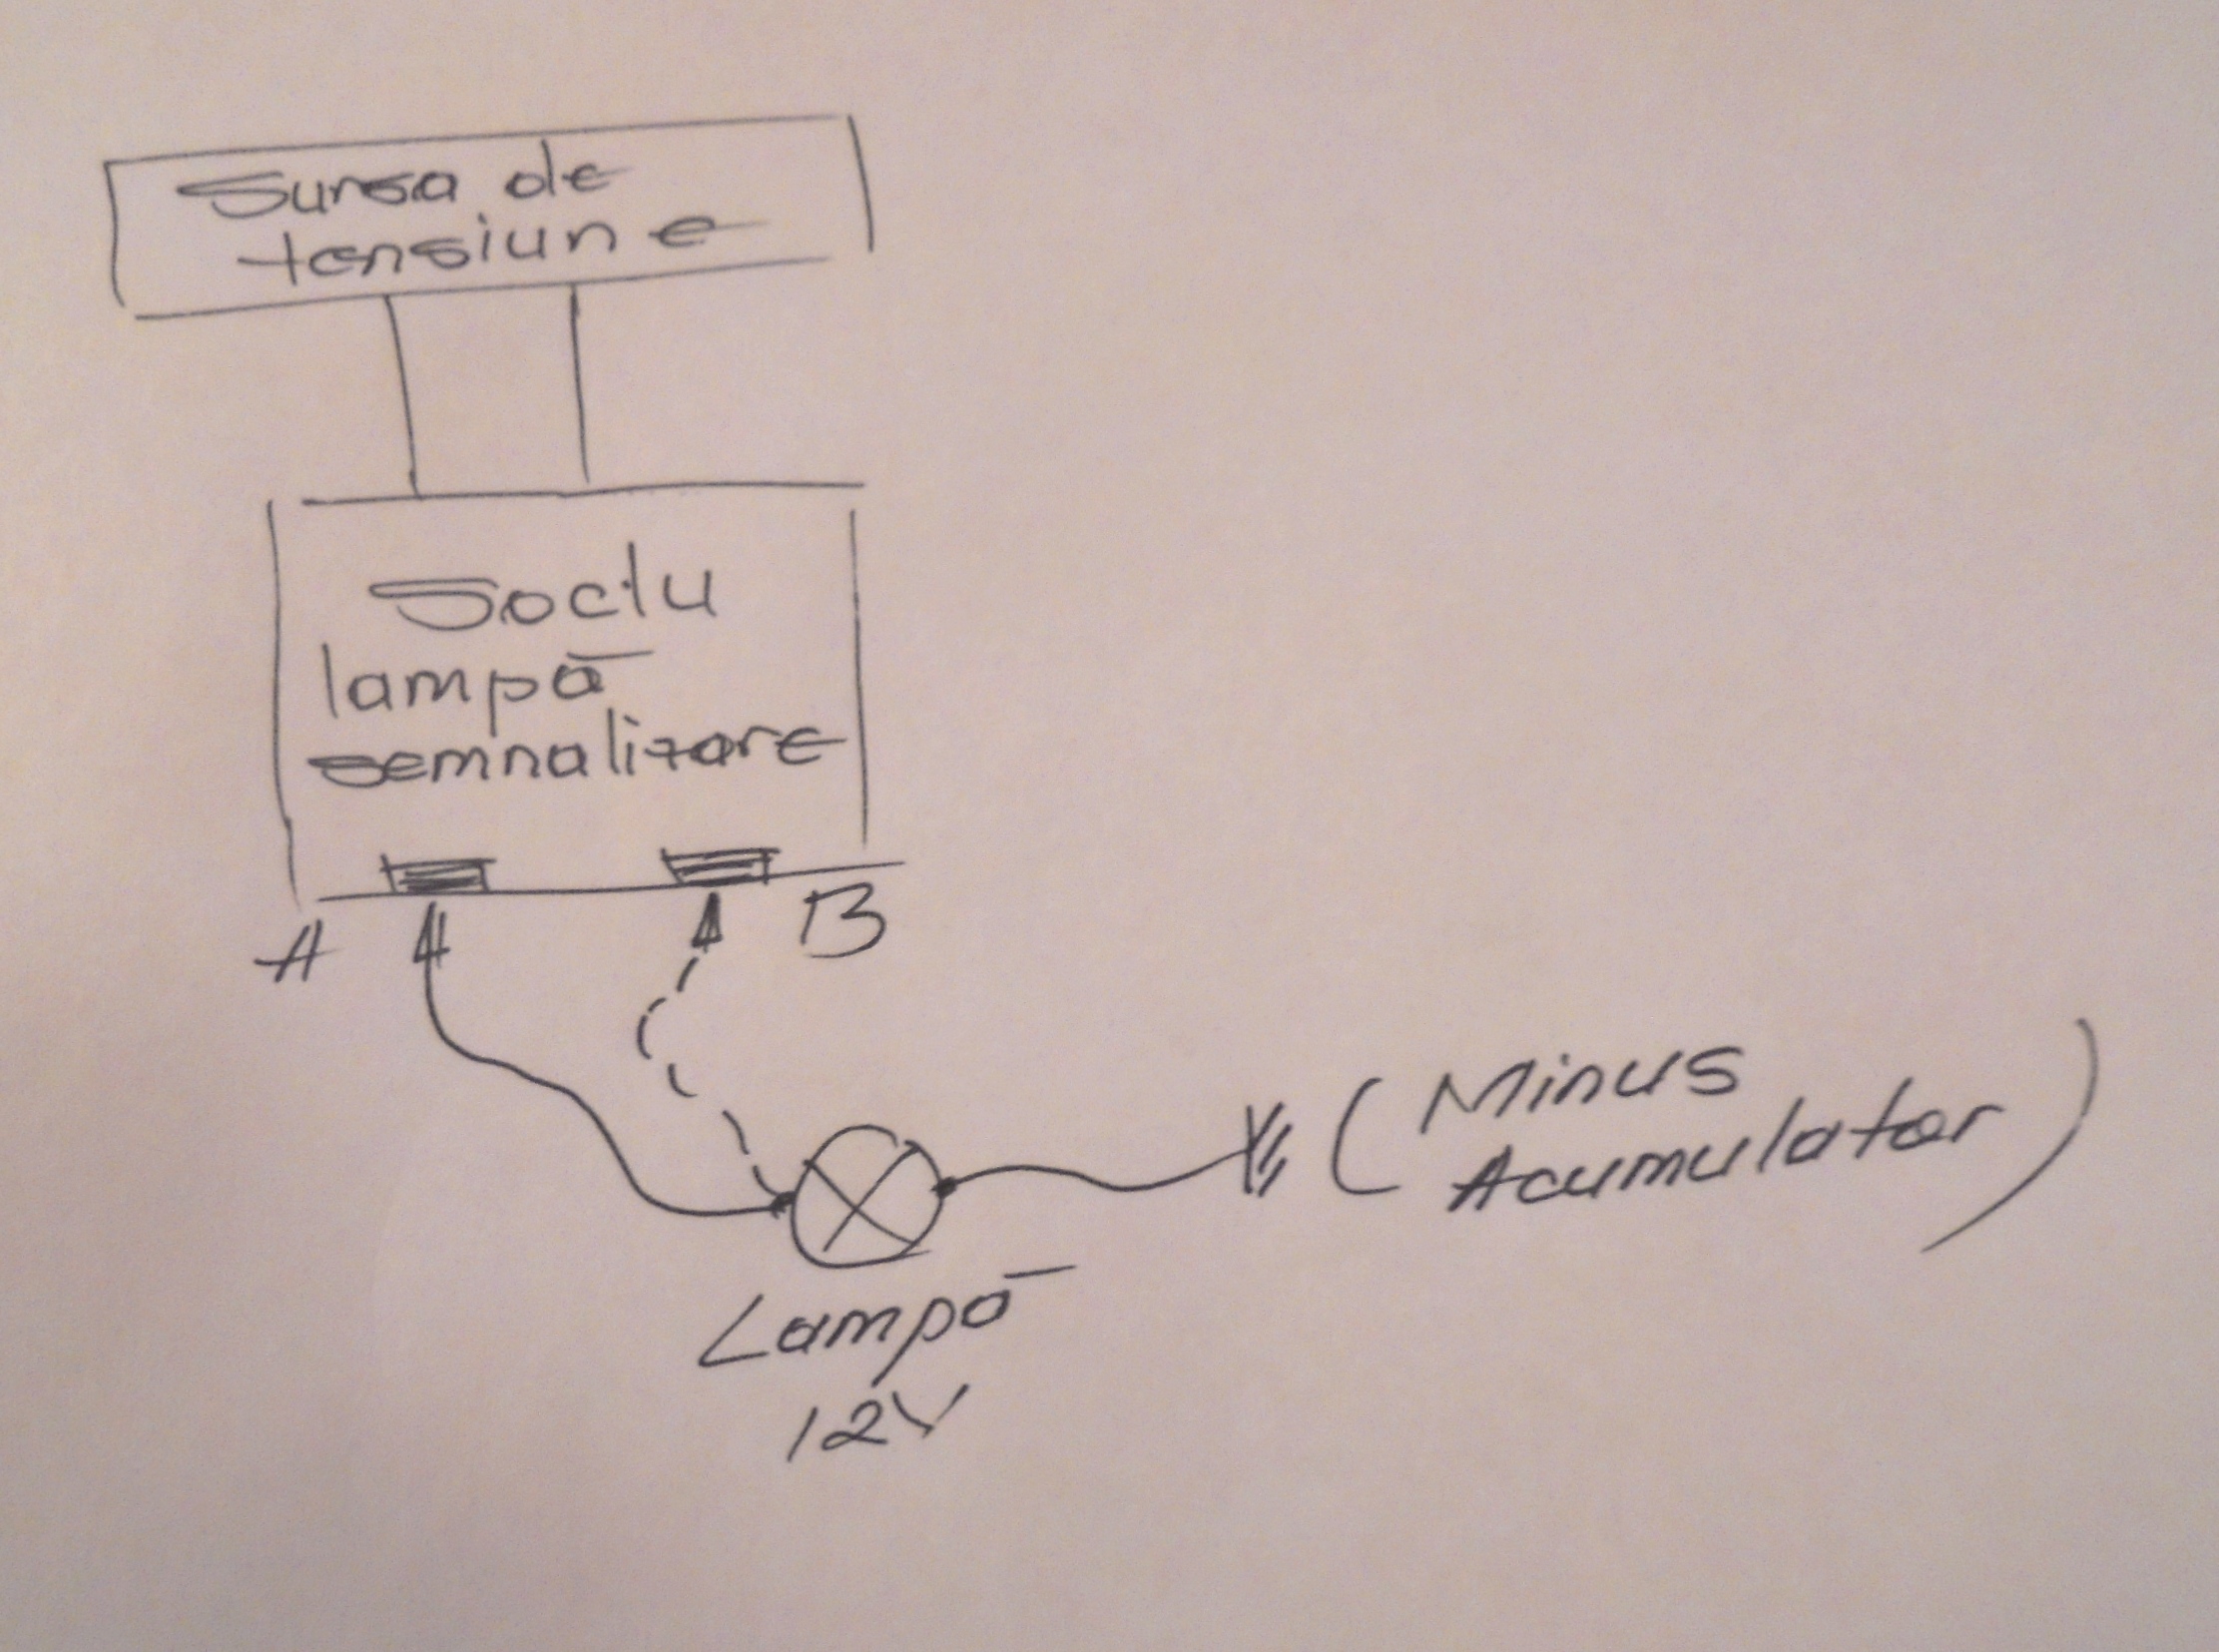 Sursa de
tensiune
Soclu
lampă
semnalizare
A
B
(Minus
Acumulator)
Lampă
12V